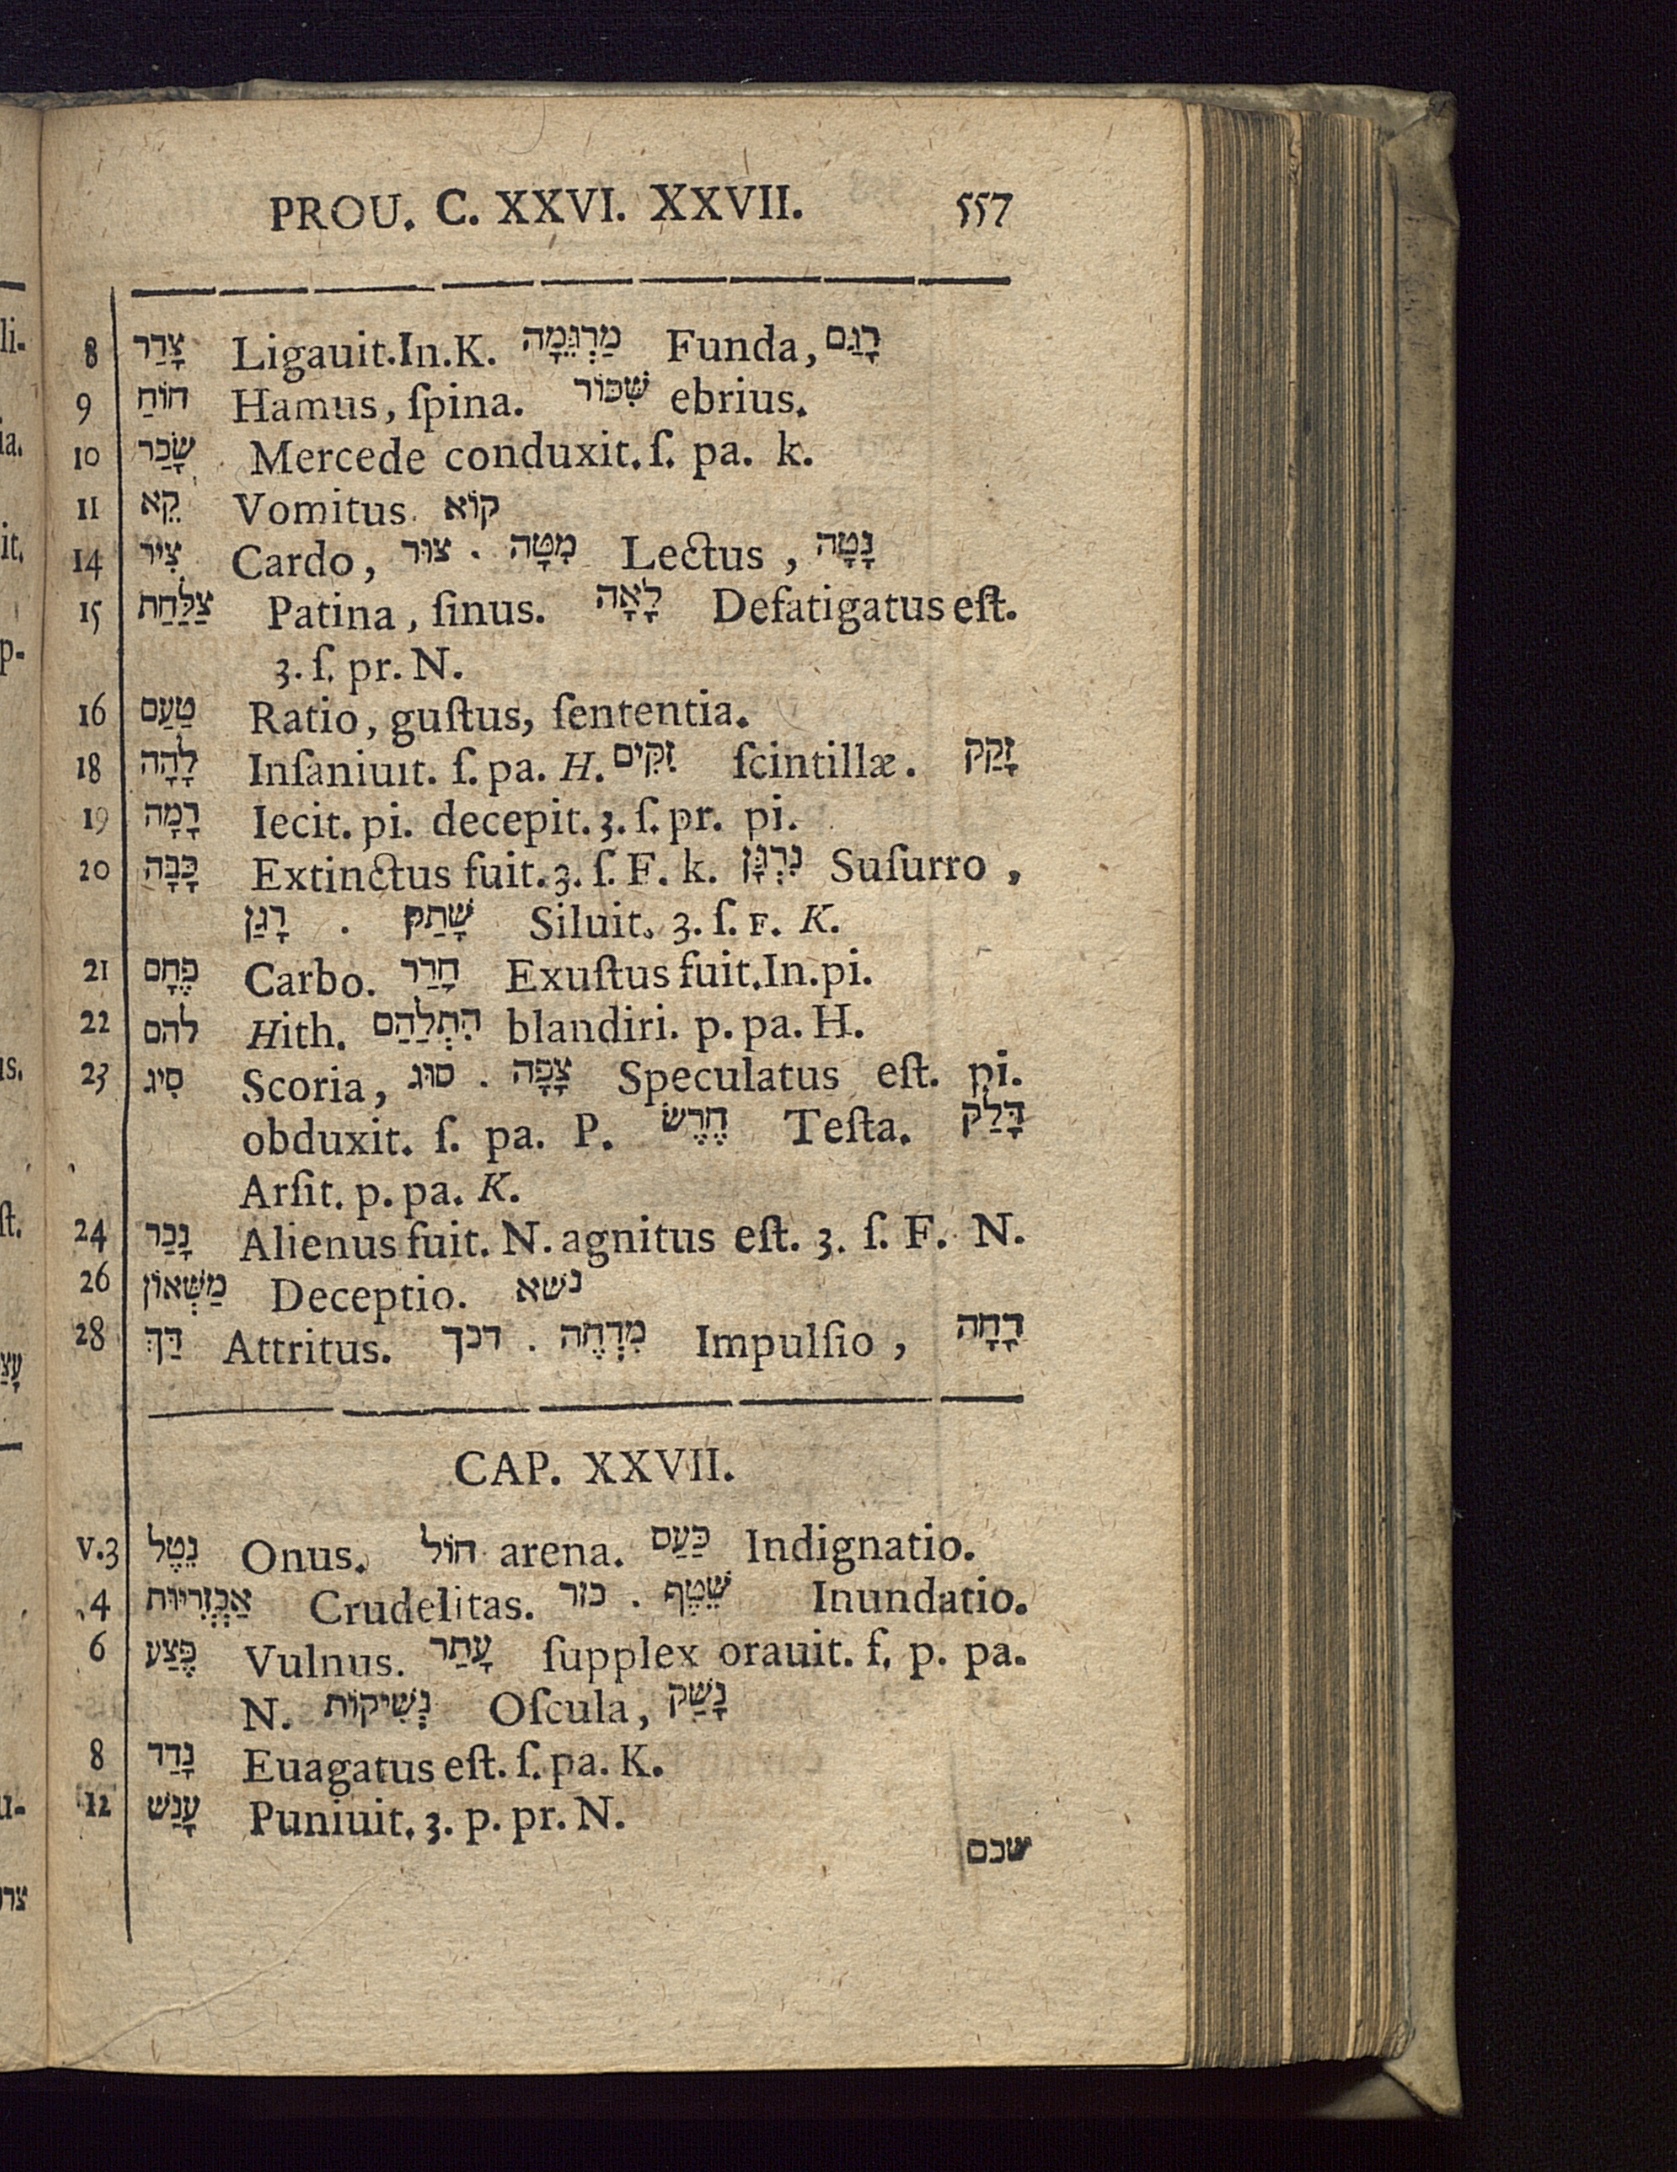 PROU. C. XXVI. XXVII. 557
8 צָרַר Ligauit.In.K. מַרְגֵּמָה Funda, רָגַם
9 חוֹחַ Hamus, ſpina. שִׁכּוֹר ebrius.
10 שָׂכַר Mercede conduxit. ſ. pa. k.
11 קֵא Vomitus. קוֹא
14 צִיר Cardo, צוּר . מִטָּה Lectus, נָטָה
15 צַלַּחַת Patina, ſinus. לָאָה Defatigatus eſt.
3. ſ. pr. N.
16 טַעַם Ratio, guſtus, ſententia.
18 לָהָה Inſaniuit. ſ. pa. H. זִקִּים ſcintillæ. זָקַק
19 רָמָה Iecit. pi. decepit. 3. ſ. pr. pi.
20 כָּבָה Extinctus fuit. 3. ſ. F. k. נִרְגָּן Suſurro,
רָגַן . שָׁתַק Siluit. 3. ſ. F. K.
21 פֶּחָם Carbo. חָרַר Exuſtus fuit. In. pi.
22 להם Hith. הִתְלַהַם blandiri. p. pa. H.
23 סִיג Scoria, סוּג . צָפָה Speculatus eſt. pi.
obduxit. ſ. pa. P. חֶרֶשׂ Teſta. דָּלַק
Arſit. p. pa. K.
24 נָכַר Alienus fuit. N. agnitus eſt. 3. ſ. F. N.
26 מַשְּׁאוֹן Deceptio. נשא
28 דַּךְ Attritus. דכך . מִדְחֶה Impulſio, דָּחָה
CAP. XXVII.
V.3 נֵטֶל Onus. חוֹל arena. כַּעַם Indignatio.
4 אַכְזְרִיּוּת Crudelitas. כזר . שֵׁטֶף Inundatio.
6 פֶּצַע Vulnus. עָתַר ſupplex orauit. ſ. p. pa.
N. נְשִׁיקוֹת Oſcula, נָשַׁק
8 נָדַד Euagatus eſt. ſ. pa. K.
12 עָנַשׁ Puniuit. 3. p. pr. N.
שכם